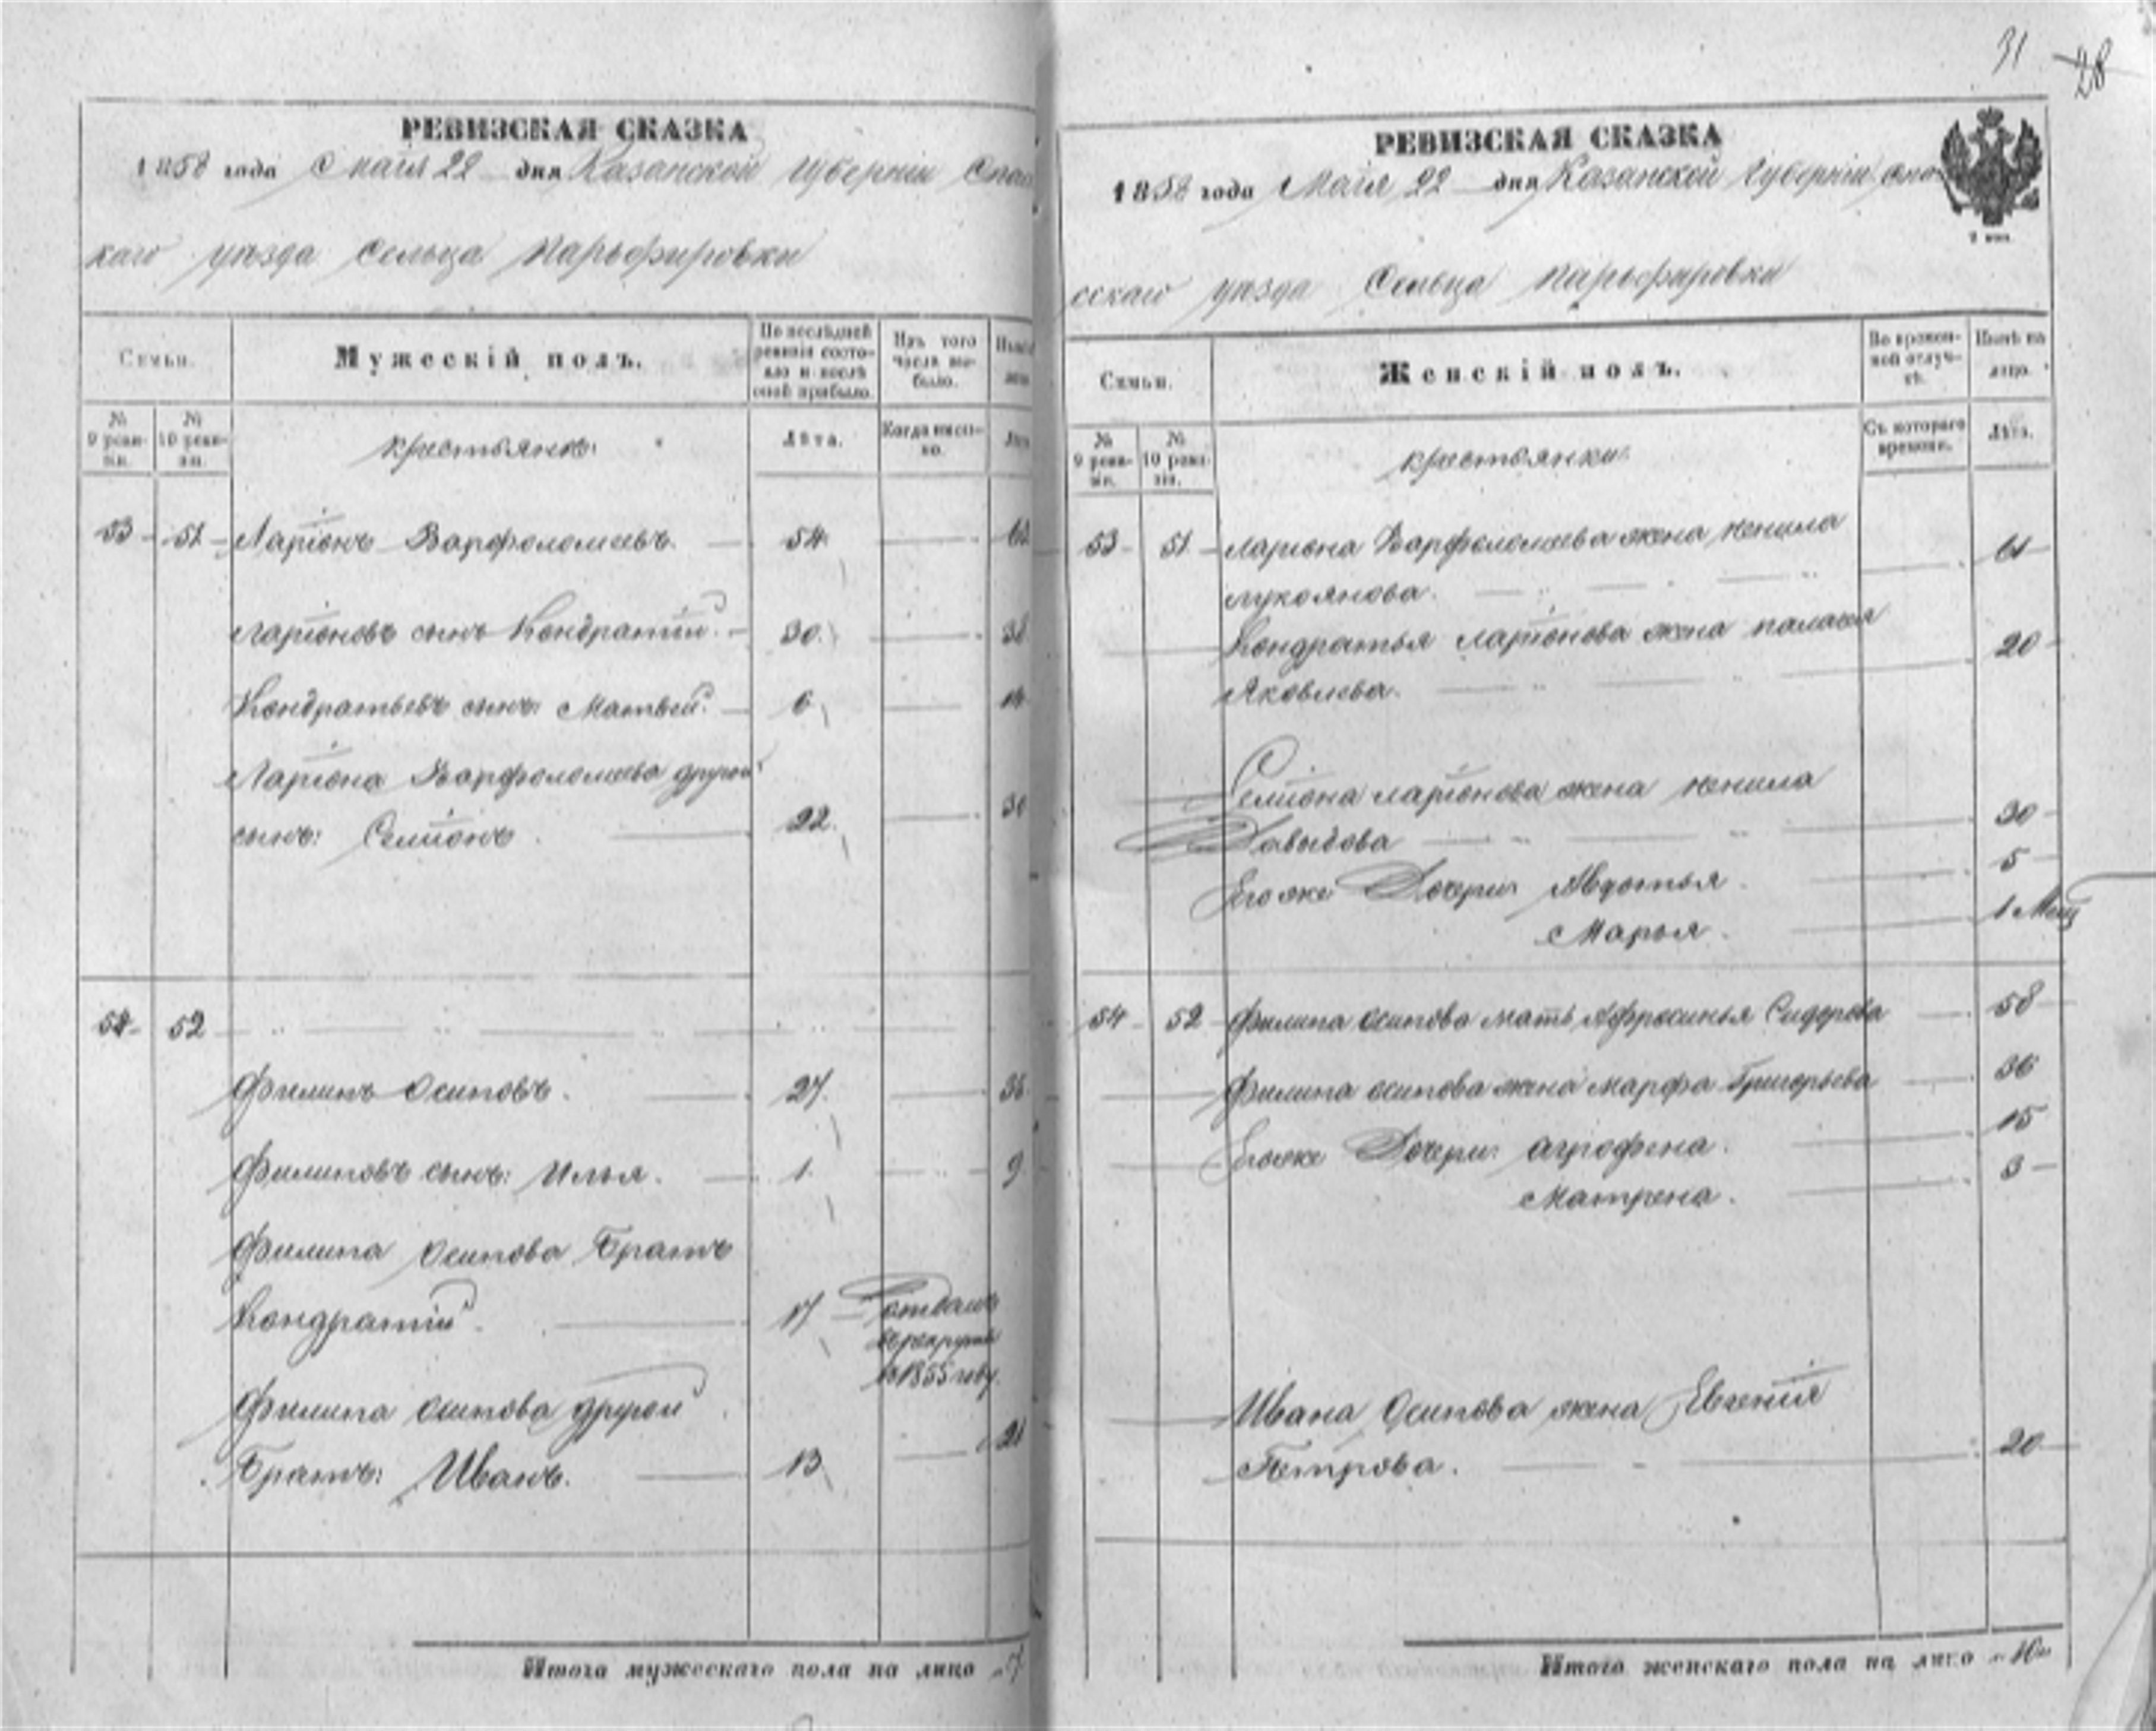 РЕВИЗСКАЯ СКАЗКА
1858 года Маія 22 дня Казанской Губерніи Спас
каго уѣзда Сельца Парьфировки
Семьи.
Мужескій полъ.
По послѣдней ревизіи состояло и послѣ оной прибыло.
Изъ того числа выбыло.
№ 9 ревизіи.
№ 10 ревизіи.
крестьянъ:
Лѣта.
Когда именно.
53 51 Ларіонъ Варфоломеевъ. 54
Ларіоновъ сынъ Кондратій. 30. 38
Кондратьевъ сынъ: Матвей. 6 14
Ларіона Варфоломеева другой
сынъ: Семіонъ. 22. 30
54 52
Филипъ Осиповъ. 27. 35
Филиповъ сынъ: Илья. 1. 9
Филипа Осипова Братъ
Кондратій. 17 отданъ
въ рекруты
въ 1855 году.
Филипа Осипова другой
Братъ: Иванъ. 13 21
Итого мужескаго пола на лицо 7
31 28
РЕВИЗСКАЯ СКАЗКА
1858 года Маія 22 дня Казанской Губерніи Спа
сскаго уѣзда Сельца Парьфировки
Семьи.
Женскій полъ.
Во временной отлучкѣ.
Нынѣ на лицо.
№ 9 ревизіи.
№ 10 ревизіи.
крестьянки
Съ котораго времени.
Лѣта.
53 51 Ларіона Варфоломеева жена Ненила
Лукоянова. 61
Кондратья Ларіонова жена Палагея
Яковлева. 20
Семіона Ларіонова жена Ненила
Давыдова 30
Его же Дочери Авдотья. 5
Марья. 1 Мец
54 52 Филипа Осипова мать Афросинья Сидорова 58
Филипа Осипова жена Марфа Григорьева 36
Его же Дочери: Агрофена. 15
Матрена. 3
Ивана Осипова жена Евгенія
Петрова. 20
Итого женскаго пола на лицо 10